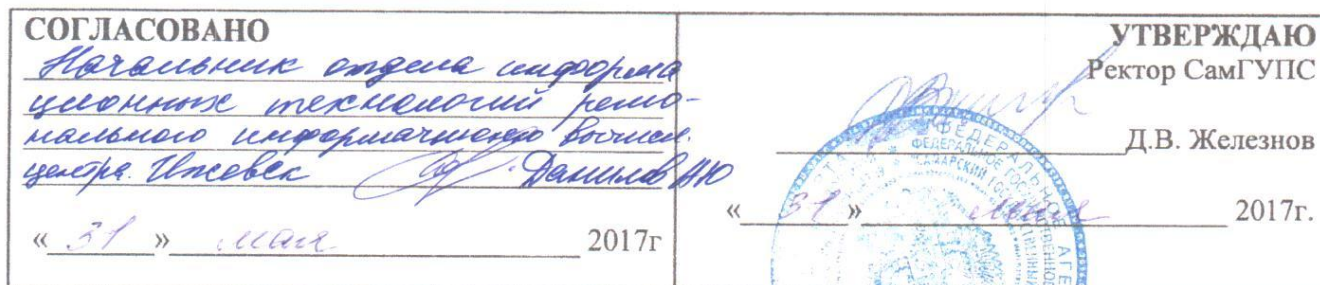 СОГЛАСОВАНО
Начальник отдела информа
ционных технологий регио-
нального информационного вычисл.
центра. Ижевск Данилов АЮ
« 31 » мая 2017г
УТВЕРЖДАЮ
Ректор СамГУПС
Д.В. Железнов
« 31 » мая 2017г.
ФЕДЕРАЛЬНОЕ
ФЕДЕРАЛЬНОЕ